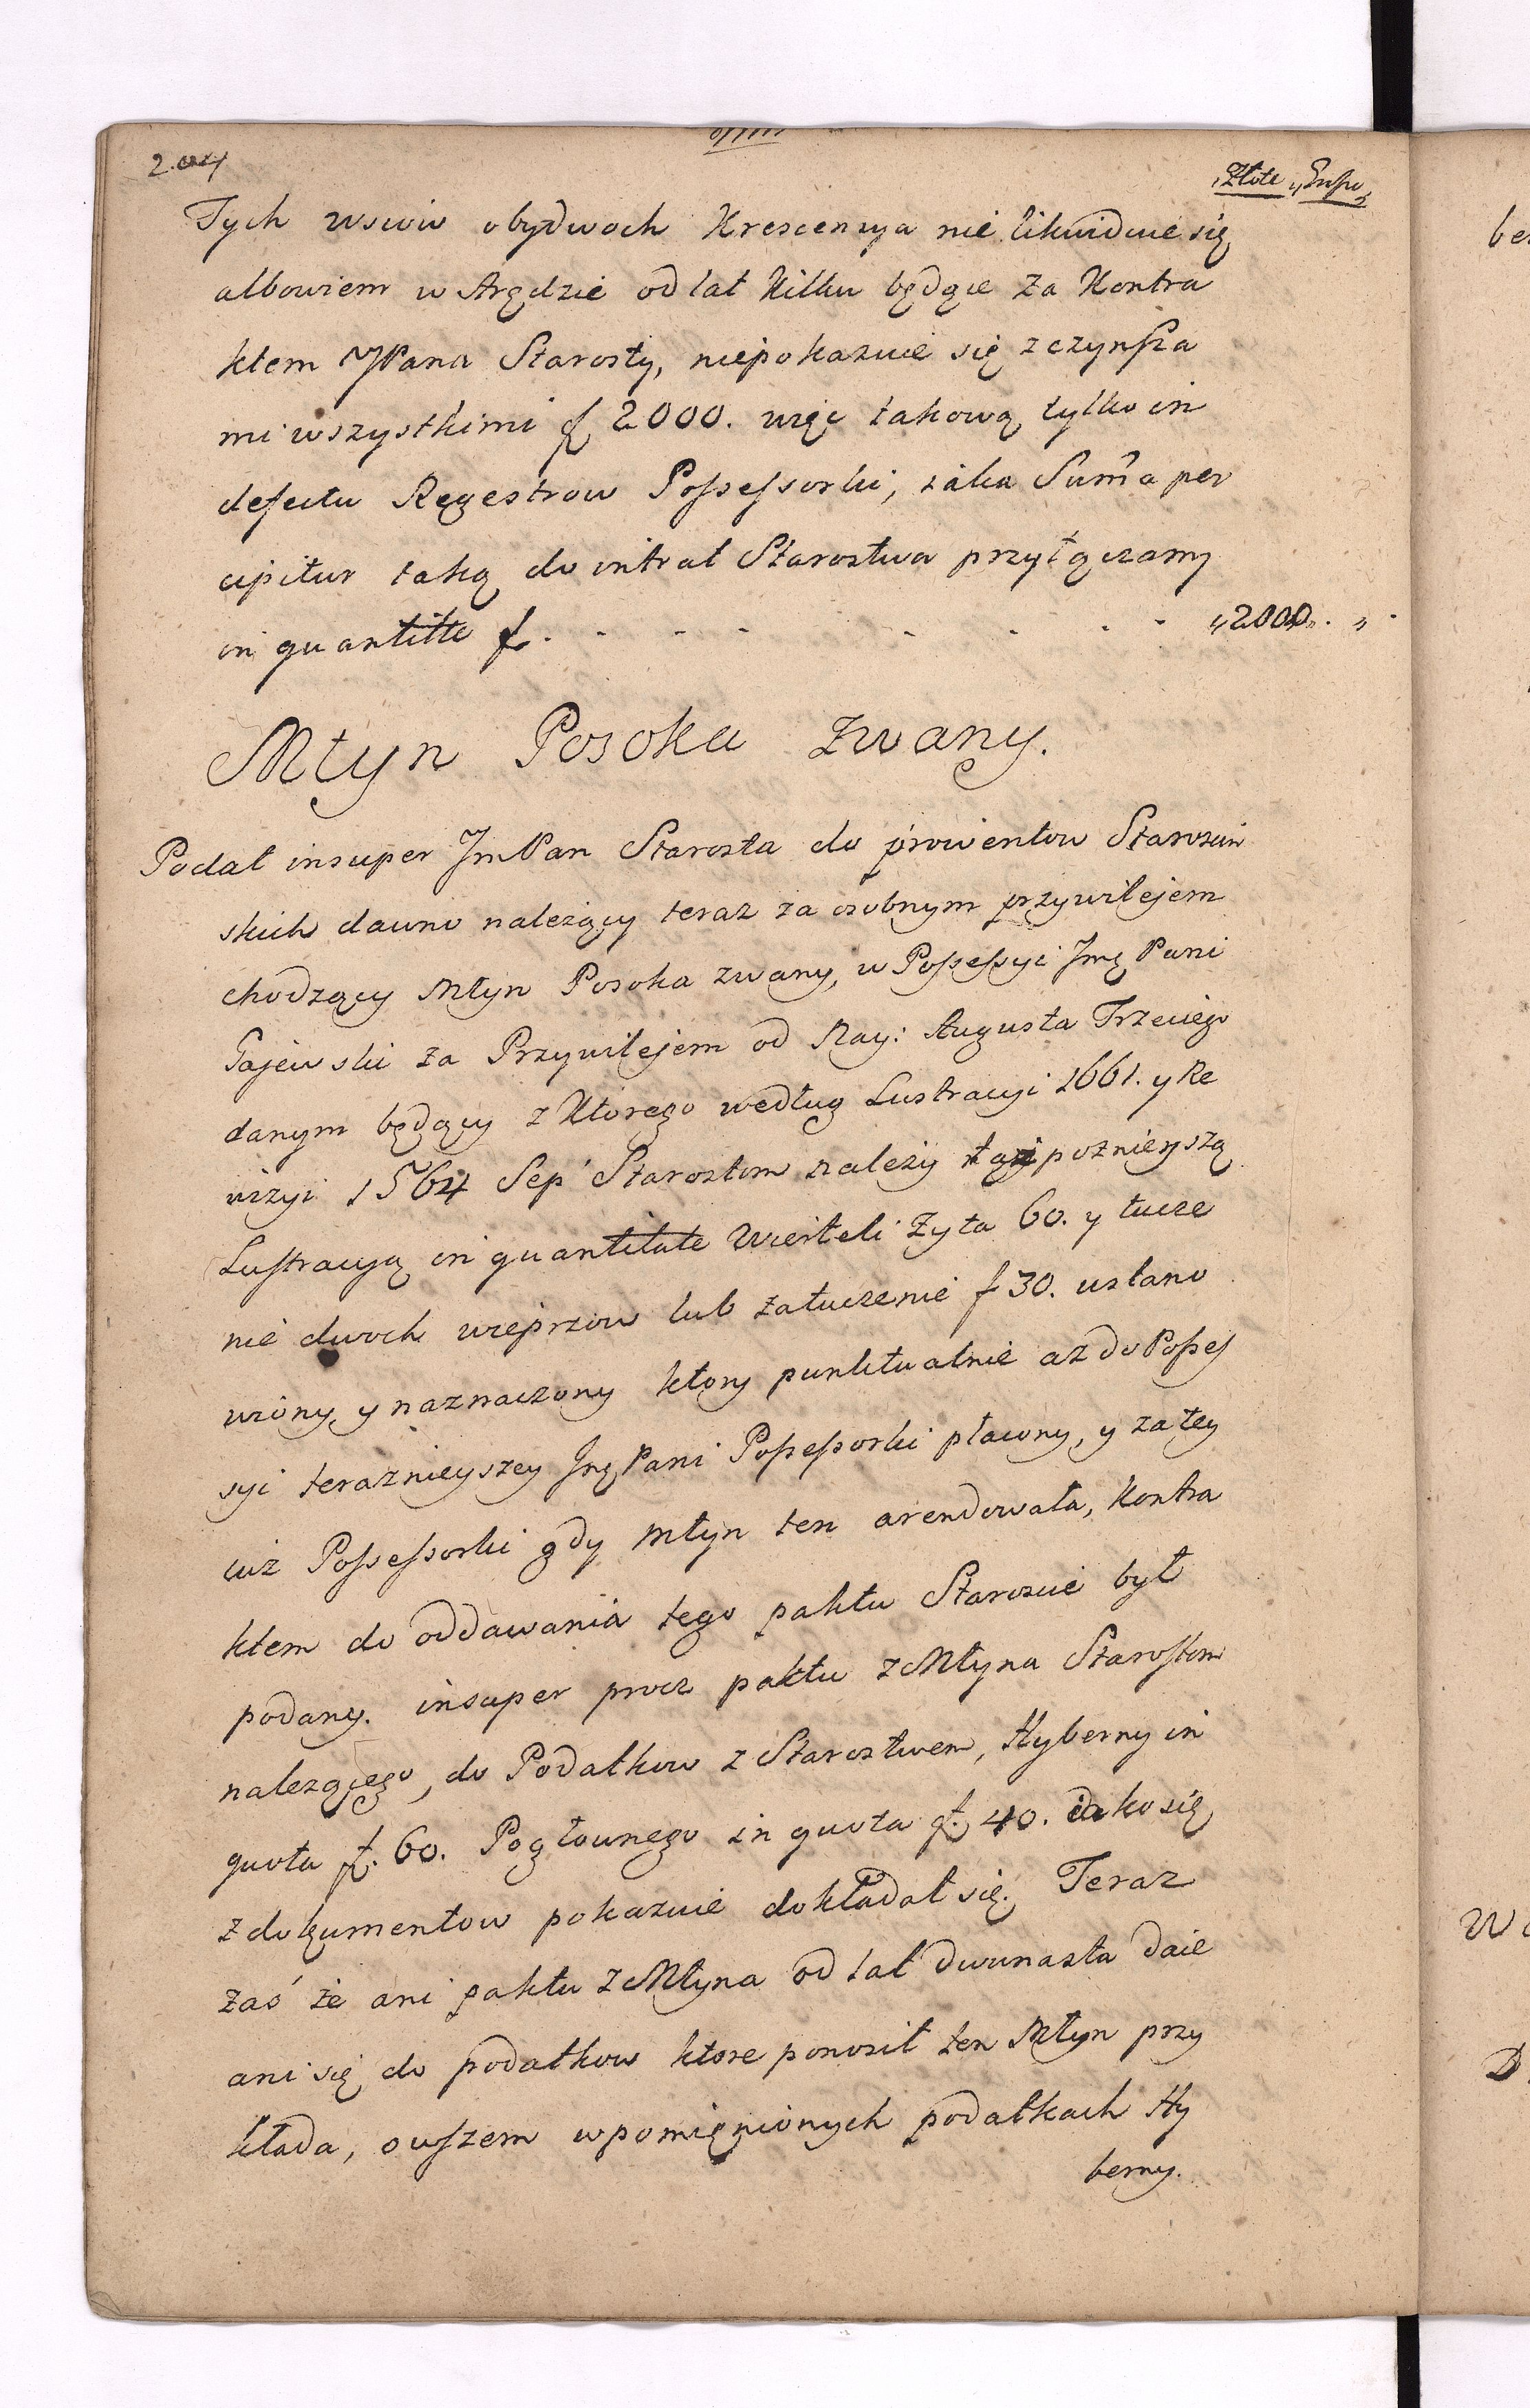 204
Złote „ Grosze
Tych wsciw obydwoch Krescenzya nie likwiduie się
albowiem w Arędzie od lat Kilku będące za Kontra
ktem JPana Starosty, niepokazuie się z czynsza
mi wszystkimi f 2000. więc takową tylko in
defectu Regestrow Possessorki, iaka Summa per
cipitur taką do intrat Starostwa przyłączamy
in quantitte f. - - - - - - - „2000„. „ -
Młyn Posoka zwany.
Podał insuper JmPan Starosta do prowentow Staroscin
skich dawno należący teraz za osobnym przywilejem
chodzący Młyn Posoka zwany, w Possessyi Jmę Pani
Gajewski za Przywilejem od Nay: Augusta Trzeciego
danym będący z Ktorego według Lustracyi 1661. y Re
wizyi 1564 Sep Starostom należy tąż poznieyszą
Lustracyą in quantitate Wierteli Zyta 60. y tucze
nie dwoch wieprzow lub zatuczenie f 30. ustano
wiony y naznaczony ktory punktualnie aż do Posses
syi teraznieyszey Jmę Pani Possessorki płacony, y za tey
iuż Possessorki gdy Młyn ten arendowała, Kontra
ktem do oddawania tego paktu Staroscie był
podany. insuper procz paktu z Młyna Starostom
nalezącego, do Podatkow z Starostwem, Hyberny in
quota f. 60. Pogłownego in quota f. 40. iako się
z dokumentow pokazuie dokładał się. Teraz
zaś że ani paktu z Młyna od lat dwunastu daie
ani się do podatkow ktore ponosił ten Młyn przy
kłada, owszem w pomięnionych podatkach Hy
berny.